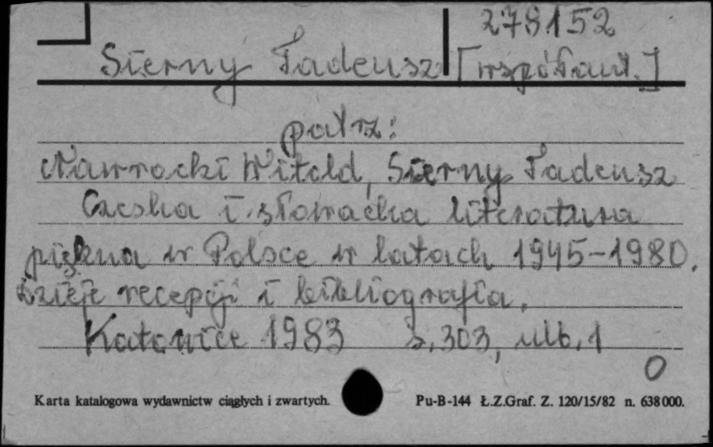 278152
Sierny Tadeusz [współaut.]
patrz:
Nawrocki Witold, Sierny Tadeusz
Czeska i słowacka literatura
piękna w Polsce w latach 1945-1980.
Dzieje recepcji i bibliografia.
Katowice 1983 s. 303, nlb. 1
0
Karta katalogowa wydawnictw ciągłych i zwartych. Pu-B-144 Ł.Z.Graf. Z. 120/15/82 n. 638000.